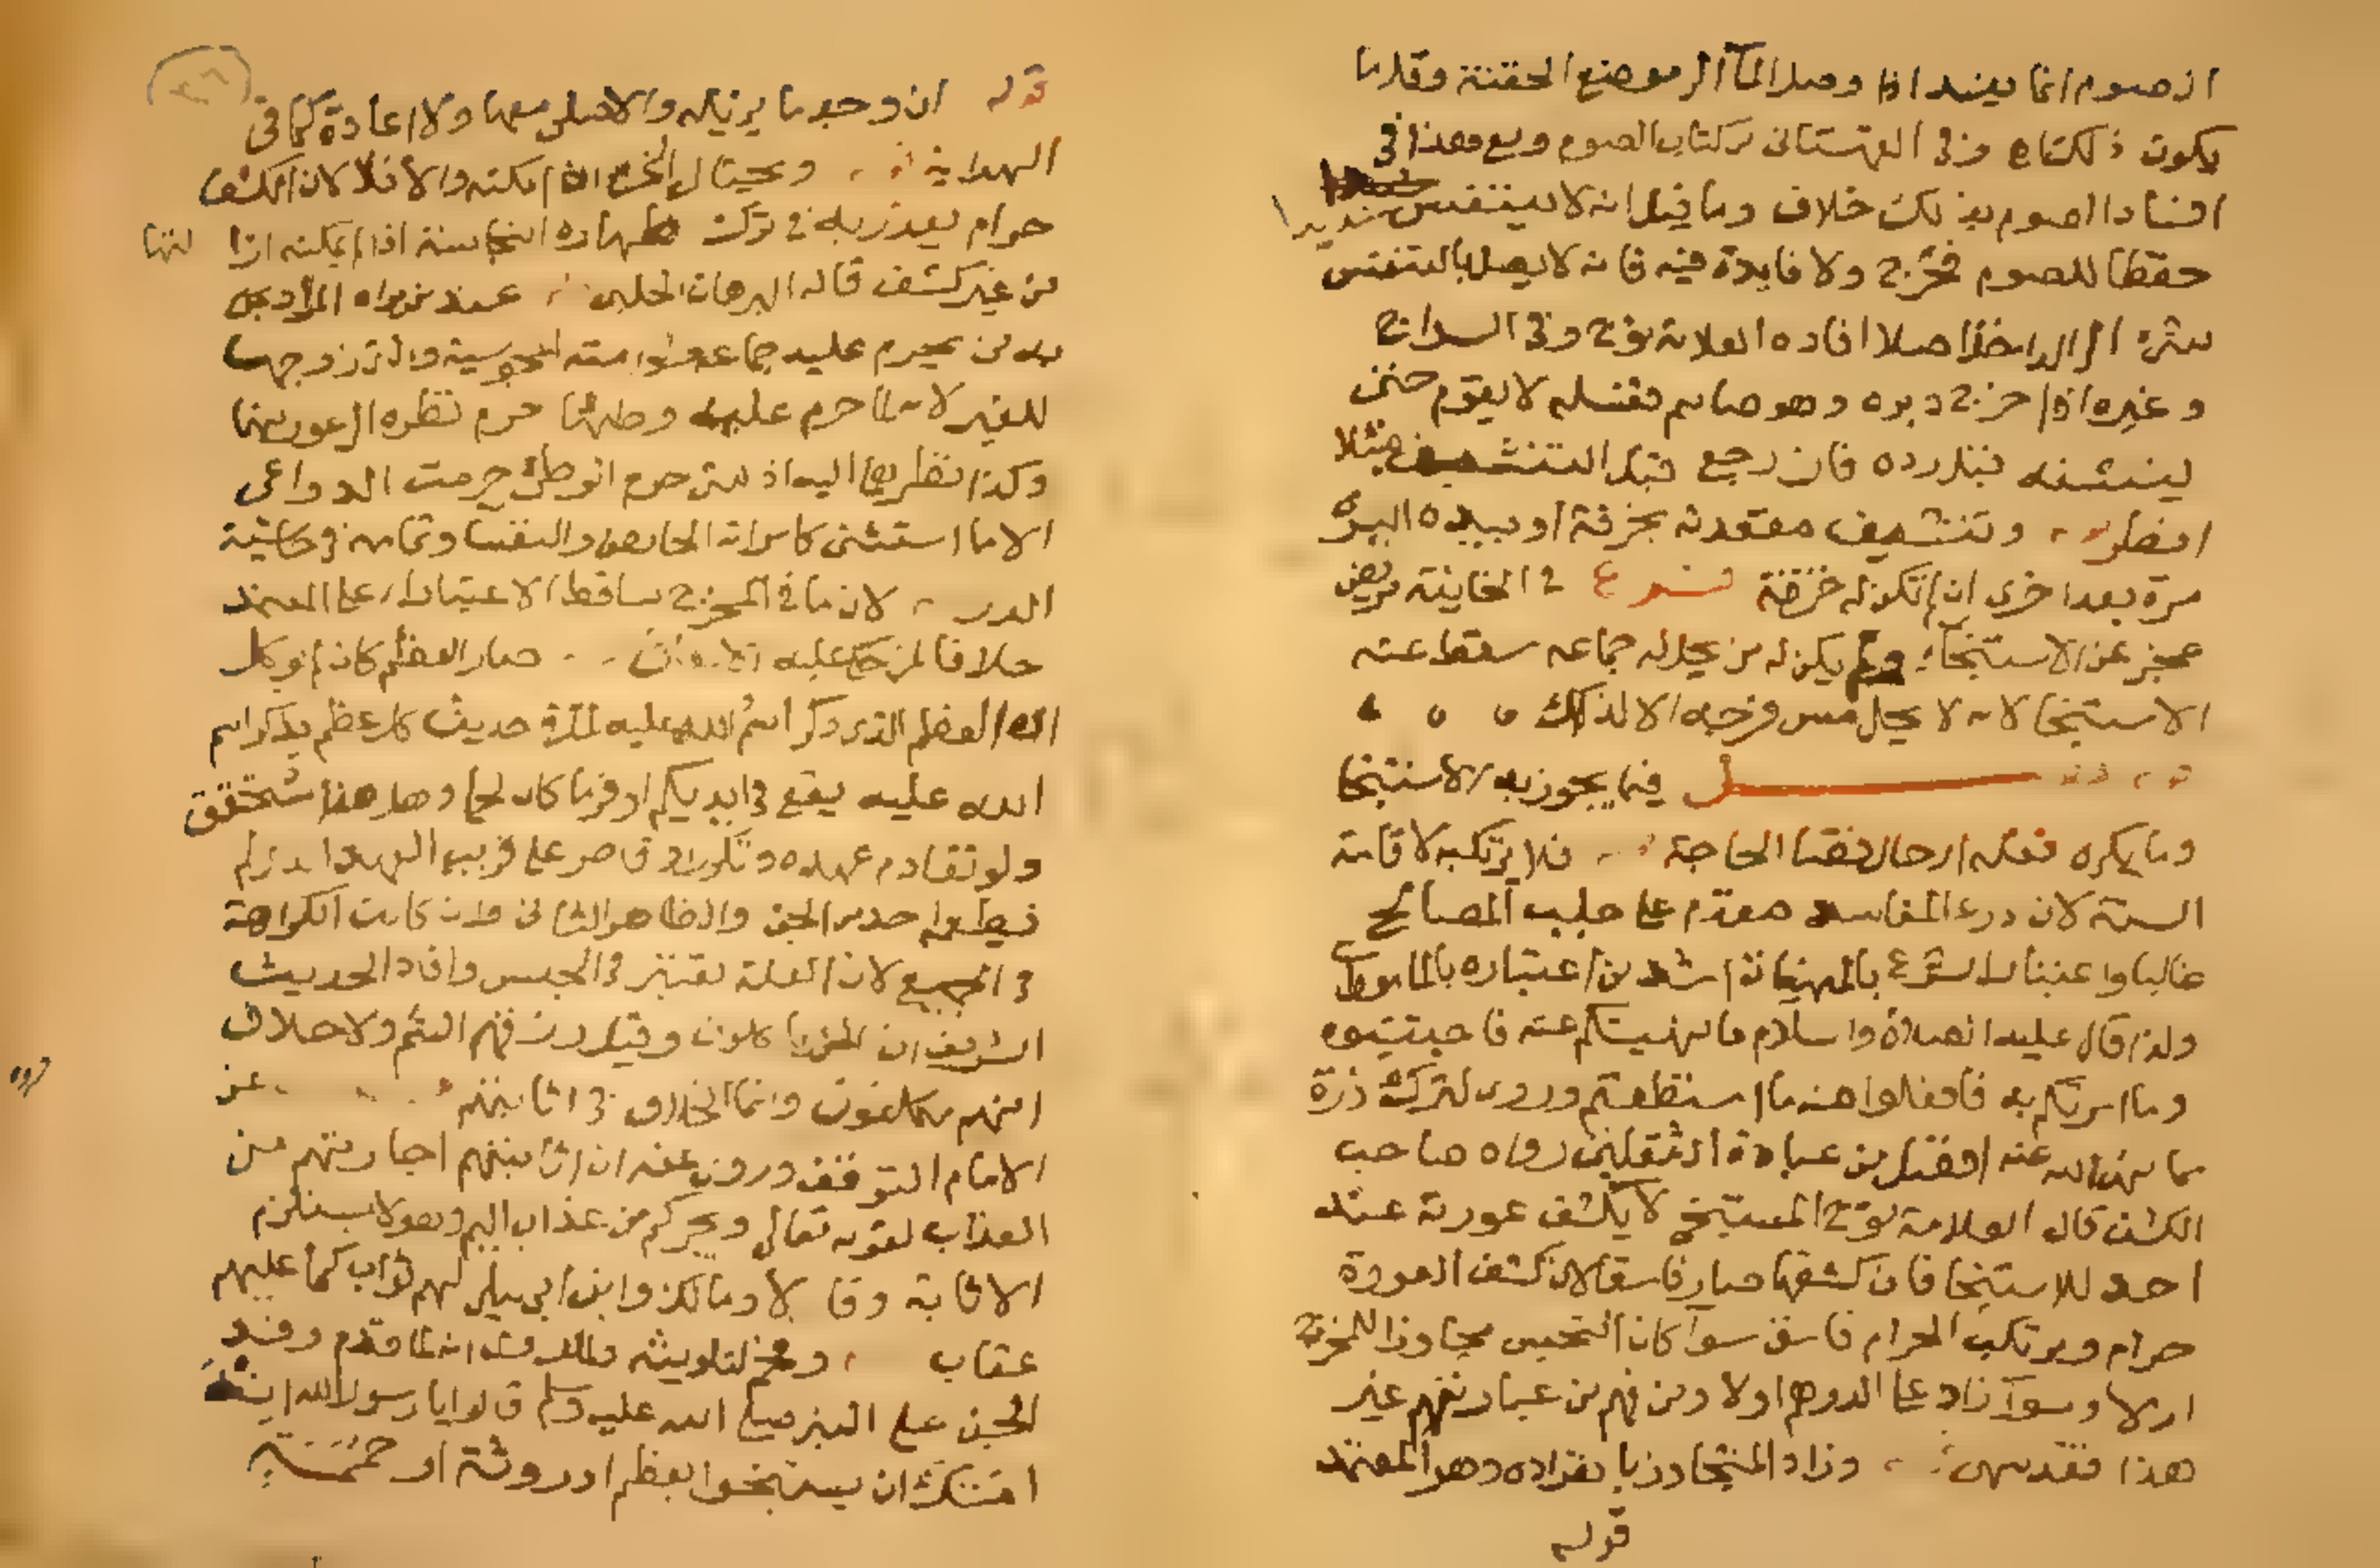 الصوم انما يفسد اذا وصل الماء الى موضع الحقنة وقلما
يكون ذلك اه وفى القهستانى من كتاب الصوم ومع هذا فى
افساد الصوم بذلك خلاف وما قيل انه لا يتنفس شديدا
حفظا للصوم فحرج ولا فايدة فيه فانه لا يصل بالتنفس
شىء الى الداخل اصلا افاده العلامة نوح وفى السراج
وغيره اذا خرج دبره وهو صايم فغسله لا يقوم حتى
لينشفه قبل رده فان رجع قبل التنشيف مثلا
افطر وتنشيف مقعدته بخرقة او بيده اليسرى
مرة بعد اخرى ان لم تكن له خرقة فروع فى الخانية مريض
عجز عن الاستنجاء ولم يكن له من يحل له جماعه سقط عنه
الاستنجا لانه لا يحل مس فرجه الا لذلك
فصل فيما يجوز به الاستنجا
وما يكره فعله حال قضا الحاجة فلا يرتكبه لاقامة
السنة لان درء المفاسد مقدم على جلب المصالح
غالبا واعتنا الشرع بالمنهيات اشد من اعتباره بالمامورات
ولذا قال عليه الصلاة والسلام ما نهيتكم عنه فاجتنبوه
وما امرتكم به فافعلوا منه ما استطعتم وروى لترك ذرة
مما نهى الله عنه افضل من عبادة الثقلين رواه صاحب
الكشف قال العلامة نوح المستنجى لا يكشف عورته عند
احد للاستنجا فان كشفها صار فاسقا لان كشف العورة
حرام ومرتكب الحرام فاسق سوآ كان النجس مجاوزا للمخرج
او لا وسوآ زاد على الدرهم اولا ومن فهم من عبارتهم غير
هذا فقد سهى وزاد المتجاوز بانفراده وهو المعتمد
قوله
قوله ان وجد ما يزيله والا صلى معها ولا اعادة كما فى
الهداية ويحتال الخ اذا امكنه والا فلا لان الكشف
حرام يعذر به فى ترك طهارة النجاسة اذا لم يمكنه ازالتها
من غير كشف قاله البرهان الحلبى عند من يراه المراد
به من يحرم عليه جماعه ولو امته المجوسية والتى زوجها
للغير لانه لما حرم عليه وطئها حرم نظره الى عورتها
وكذا نظرها اليه اذ متى حرم الوطئ حرمت الدواعى
الا ما استثنى كامراته الحايض والنفسا وتمامه فى حاشية
الدرر لان ما فى المخرج ساقط الاعتبار على المعتمد
خلافا لمن صار العظم كان لم يوكل
العظم الذى ذكر اسم الله عليه لما فى حديث كل عظم يذكر اسم
الله عليه يقع فى ايديكم اوفر ما كان لحما وهل هذا متحقق
ولو تقادم عهده وتكرر او قاصر على قريب العهد
الجن والظاهر الثانى وان كانت الكراهة
فى الجميع لان العلة تعتبر فى الجنس وافاد الحديث
الشريف ان الجن ياكلون وقيل رزقهم الشم ولا خلاف
انهم مكلفون وانما الخلاف فى اثابتهم عن
الامام التوقف وروى عنه ان اثابتهم اجارتهم من
العذاب لقوله تعالى ويجركم من عذاب اليم وهو لا يستلزم
الاثابة وقالا ومالك وابن ابى ليلى لهم ثواب كما عليهم
عقاب انه لما قدم وفد
الجن على النبى صلى الله عليه وسلم قالوا يا رسول الله
امتك ان يستنجوا بعظم او روثة او حممة